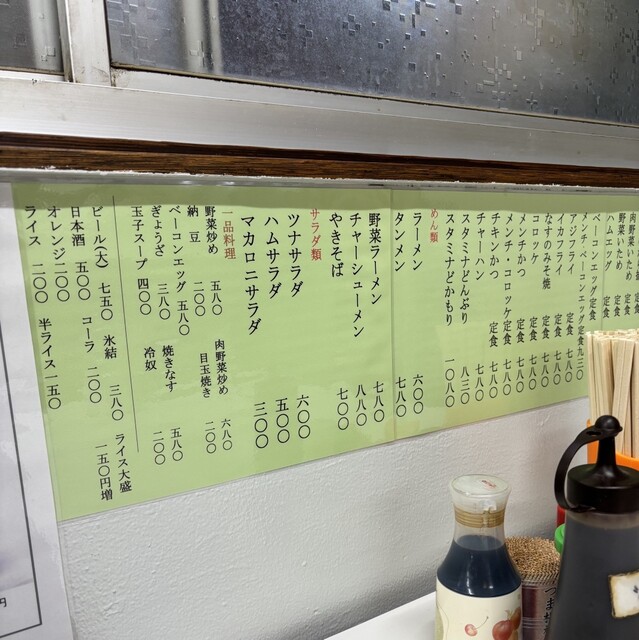 肉野菜いため 定食
野菜いため 定食
ハムエッグ 定食
ベーコンエッグ定食
メンチ・ベーコンエッグ定食九三〇
アジフライ 定食 七八〇
イカフライ 定食 七八〇
なすのみそ焼 定食 七八〇
コロッケ 定食 七八〇
メンチかつ 定食 七八〇
メンチ・コロッケ 定食 七八〇
チキンかつ 定食 七八〇
チャーハン 七八〇
スタミナどんぶり 八三〇
スタミナどかもり 一〇八〇
めん類
ラーメン 六〇〇
タンメン 七八〇
野菜ラーメン 七八〇
チャーシューメン 八八〇
やきそば 七〇〇
サラダ類
ツナサラダ 六〇〇
ハムサラダ 五〇〇
マカロニサラダ 三〇〇
一品料理
野菜炒め 五八〇 肉野菜炒め 六八〇
納豆 二〇〇 目玉焼き 二〇〇
ベーコンエッグ 五八〇 焼きなす 五八〇
ぎょうざ 三八〇 冷奴 二〇〇
玉子スープ 四〇〇
ビール(大) 七五〇 氷結 三八〇 ライス大盛 一五〇円増
日本酒 五〇〇 コーラ 二〇〇
オレンジ二〇〇
ライス 二〇〇 半ライス一五〇
円
つま